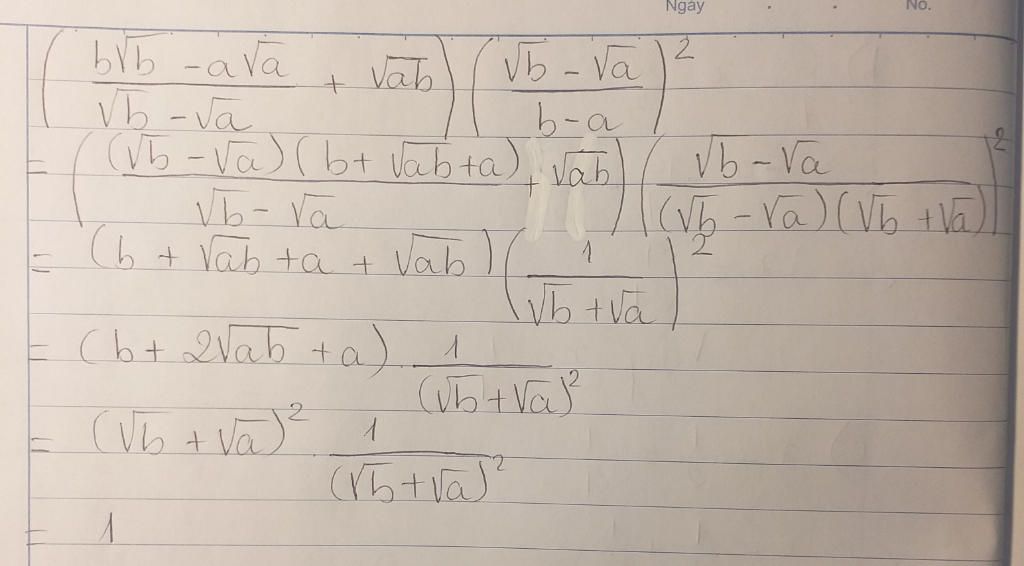 Ngày . . No.
( (b√b - a√a)/(√b - √a) + √ab ) ( (√b - √a)/(b - a) )²
= ( (√b - √a)(b + √ab + a)/(√b - √a) + √ab ) ( (√b - √a)/((√b - √a)(√b + √a)) )²
= (b + √ab + a + √ab) ( 1/(√b + √a) )²
= (b + 2√ab + a) . 1/(√b + √a)²
= (√b + √a)² . 1/(√b + √a)²
= 1